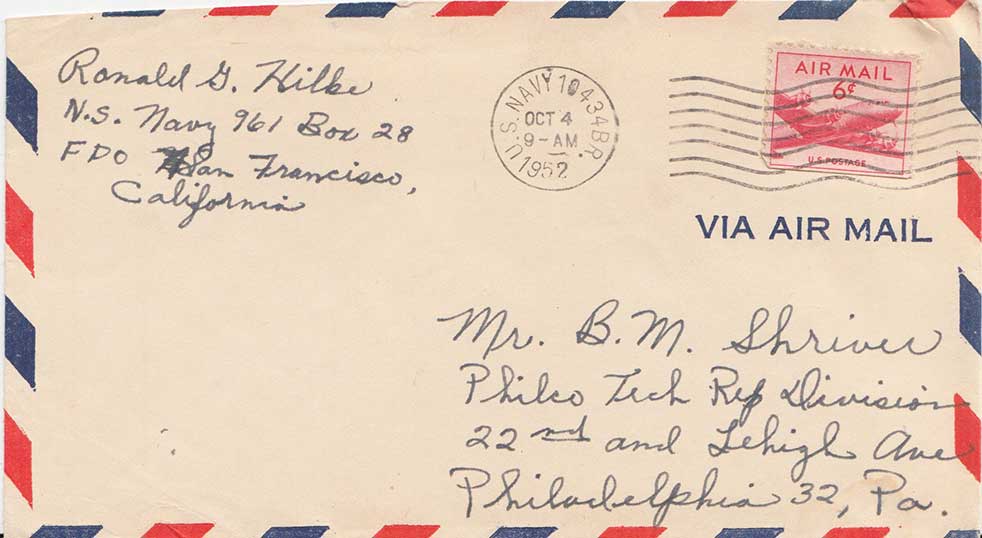 Ronald G. Hilke
N.S. Navy 961 Box 28
FPO San Francisco,
California
U.S. NAVY 10434 BR.
OCT 4
9-AM
1952
AIR MAIL
6¢
U.S. POSTAGE
VIA AIR MAIL
Mr. B. M. Shriver
Philco Tech Rep Division
22nd and Lehigh Ave
Philadelphia 32, Pa.